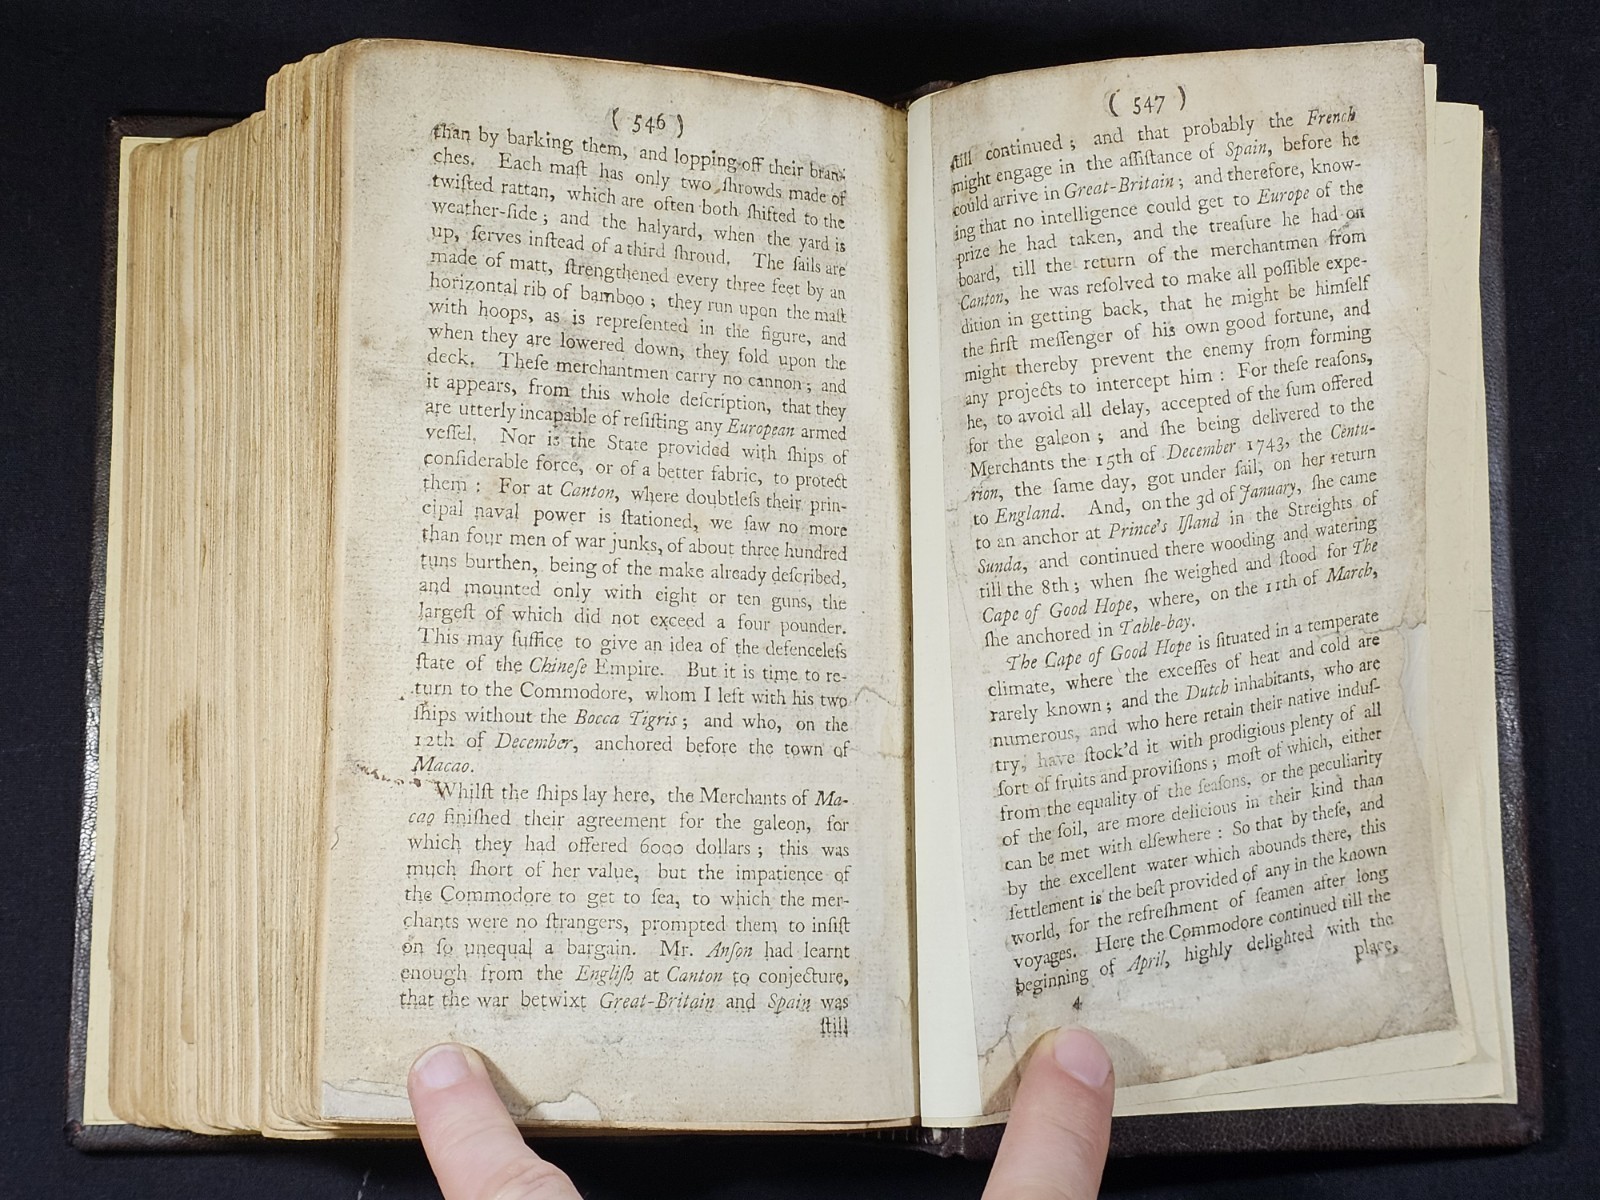 ( 546 )
than by barking them, and lopping off their bran-
ches. Each maſt has only two ſhrowds made of
twiſted rattan, which are often both ſhifted to the
weather-ſide ; and the halyard, when the yard is
up, ſerves inſtead of a third ſhroud. The ſails are
made of matt, ſtrengthened every three feet by an
horizontal rib of bamboo ; they run upon the maſt
with hoops, as is repreſented in the figure, and
when they are lowered down, they fold upon the
deck. Theſe merchantmen carry no cannon ; and
it appears, from this whole deſcription, that they
are utterly incapable of reſiſting any European armed
veſſel. Nor is the State provided with ſhips of
conſiderable force, or of a better fabric, to protect
them : For at Canton, where doubtleſs their prin-
cipal naval power is ſtationed, we ſaw no more
than four men of war junks, of about three hundred
tuns burthen, being of the make already deſcribed,
and mounted only with eight or ten guns, the
largeſt of which did not exceed a four pounder.
This may ſuffice to give an idea of the defenceleſs
ſtate of the Chineſe Empire. But it is time to re-
turn to the Commodore, whom I left with his two
ſhips without the Bocca Tigris ; and who, on the
12th of December, anchored before the town of
Macao.
Whilſt the ſhips lay here, the Merchants of Ma-
cao finiſhed their agreement for the galeon, for
which they had offered 6000 dollars ; this was
much ſhort of her value, but the impatience of
the Commodore to get to ſea, to which the mer-
chants were no ſtrangers, prompted them to inſiſt
on ſo unequal a bargain. Mr. Anſon had learnt
enough from the Engliſh at Canton to conjecture,
that the war betwixt Great-Britain and Spain was
ſtill
( 547 )
ſtill continued ; and that probably the French
might engage in the aſſiſtance of Spain, before he
could arrive in Great-Britain ; and therefore, know-
ing that no intelligence could get to Europe of the
prize he had taken, and the treaſure he had on
board, till the return of the merchantmen from
Canton, he was reſolved to make all poſſible expe-
dition in getting back, that he might be himſelf
the firſt meſſenger of his own good fortune, and
might thereby prevent the enemy from forming
any projects to intercept him : For theſe reaſons,
he, to avoid all delay, accepted of the ſum offered
for the galeon ; and ſhe being delivered to the
Merchants the 15th of December 1743, the Centu-
rion, the ſame day, got under ſail, on her return
to England. And, on the 3d of January, ſhe came
to an anchor at Prince's Iſland in the Streights of
Sunda, and continued there wooding and watering
till the 8th ; when ſhe weighed and ſtood for The
Cape of Good Hope, where, on the 11th of March,
ſhe anchored in Table-bay.
The Cape of Good Hope is ſituated in a temperate
climate, where the exceſſes of heat and cold are
rarely known ; and the Dutch inhabitants, who are
numerous, and who here retain their native induſ-
try, have ſtock'd it with prodigious plenty of all
ſort of fruits and proviſions ; moſt of which, either
from the equality of the ſeaſons, or the peculiarity
of the ſoil, are more delicious in their kind than
can be met with elſewhere : So that by theſe, and
by the excellent water which abounds there, this
ſettlement is the beſt provided of any in the known
world, for the refreſhment of ſeamen after long
voyages. Here the Commodore continued till the
beginning of April, highly delighted with the
place,
4